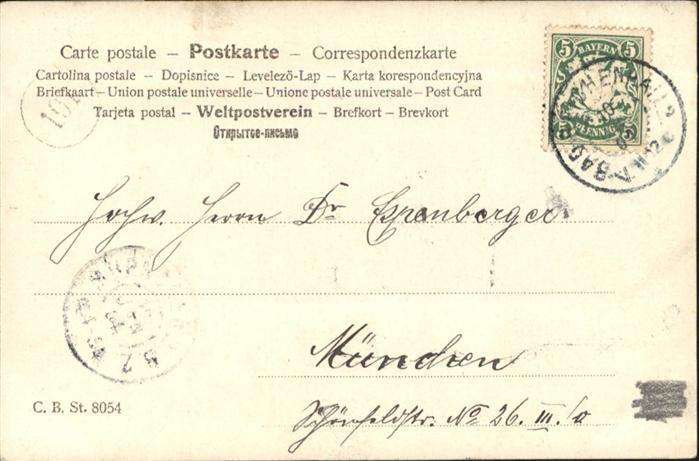 Carte postale – Postkarte – Correspondenzkarte
Cartolina postale – Dopisnice – Levelező-Lap – Karta korespondencyjna
Briefkaart – Union postale universelle – Unione postale universale – Post Card
Tarjeta postal – Weltpostverein – Brefkort – Brevkort
Открытое-письмо
101
5 BAYERN 5
PFENNIG
Hochw. Herrn Dr Expenberger
München
Schönfeldstr. No 26. III. /0
C. B. St. 8054